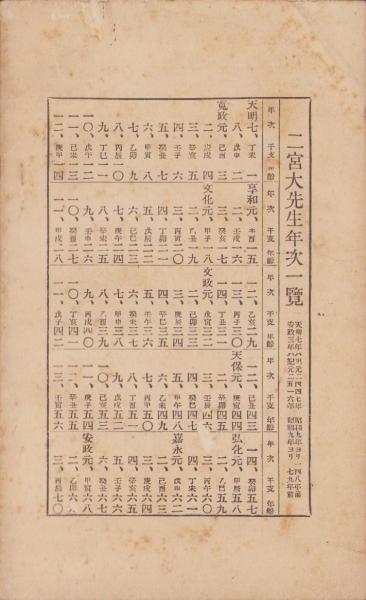 二宮大先生年次一覽
天明七年ハ紀元二四四七年 昭和九年ヨリ一四八年前
安政三年ハ紀元二五一六年 昭和九年ヨリ七九年前
年次 干支 年齡
天明七、丁未 一
八、戊申 二
寛政元、己酉 三
二、庚戌 四
三、辛亥 五
四、壬子 六
五、癸丑 七
六、甲寅 八
七、乙卯 九
八、丙辰 一〇
九、丁巳 一一
一〇、戊午 一二
一一、己未 一三
一二、庚申 一四
年次 干支 年齡
享和元、辛酉 一五
二、壬戌 一六
三、癸亥 一七
文化元、甲子 一八
二、乙丑 一九
三、丙寅 二〇
四、丁卯 二一
五、戊辰 二二
六、己巳 二三
七、庚午 二四
八、辛未 二五
九、壬申 二六
一〇、癸酉 二七
一一、甲戌 二八
年次 干支 年齡
一二、乙亥 二九
一三、丙子 三〇
一四、丁丑 三一
文政元、戊寅 三二
二、己卯 三三
三、庚辰 三四
四、辛巳 三五
五、壬午 三六
六、癸未 三七
七、甲申 三八
八、乙酉 三九
九、丙戌 四〇
一〇、丁亥 四一
一一、戊子 四二
年次 干支 年齡
一二、己丑 四三
天保元、庚寅 四四
二、辛卯 四五
三、壬辰 四六
四、癸巳 四七
五、甲午 四八
六、乙未 四九
七、丙申 五〇
八、丁酉 五一
九、戊戌 五二
一〇、己亥 五三
一一、庚子 五四
一二、辛丑 五五
一三、壬寅 五六
年次 干支 年齡
一四、癸卯 五七
弘化元、甲辰 五八
二、乙巳 五九
三、丙午 六〇
四、丁未 六一
嘉永元、戊申 六二
二、己酉 六三
三、庚戌 六四
四、辛亥 六五
五、壬子 六六
六、癸丑 六七
安政元、甲寅 六八
二、乙卯 六九
三、丙辰 七〇